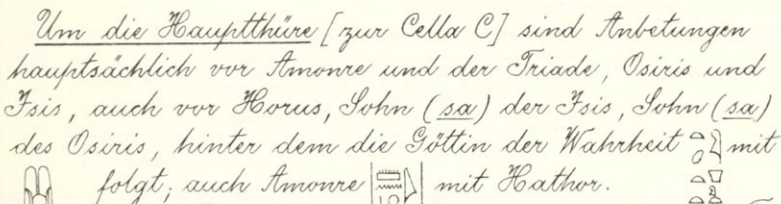 Um die Hauptthüre [zur Cella C] sind Anbetungen
hauptsächlich vor Amonre und der Triade, Osiris und
Isis, auch vor Horus, Sohn (sa) der Isis, Sohn (sa)
des Osiris, hinter dem die Göttin der Wahrheit mit
folgt; auch Amonre mit Hathor.